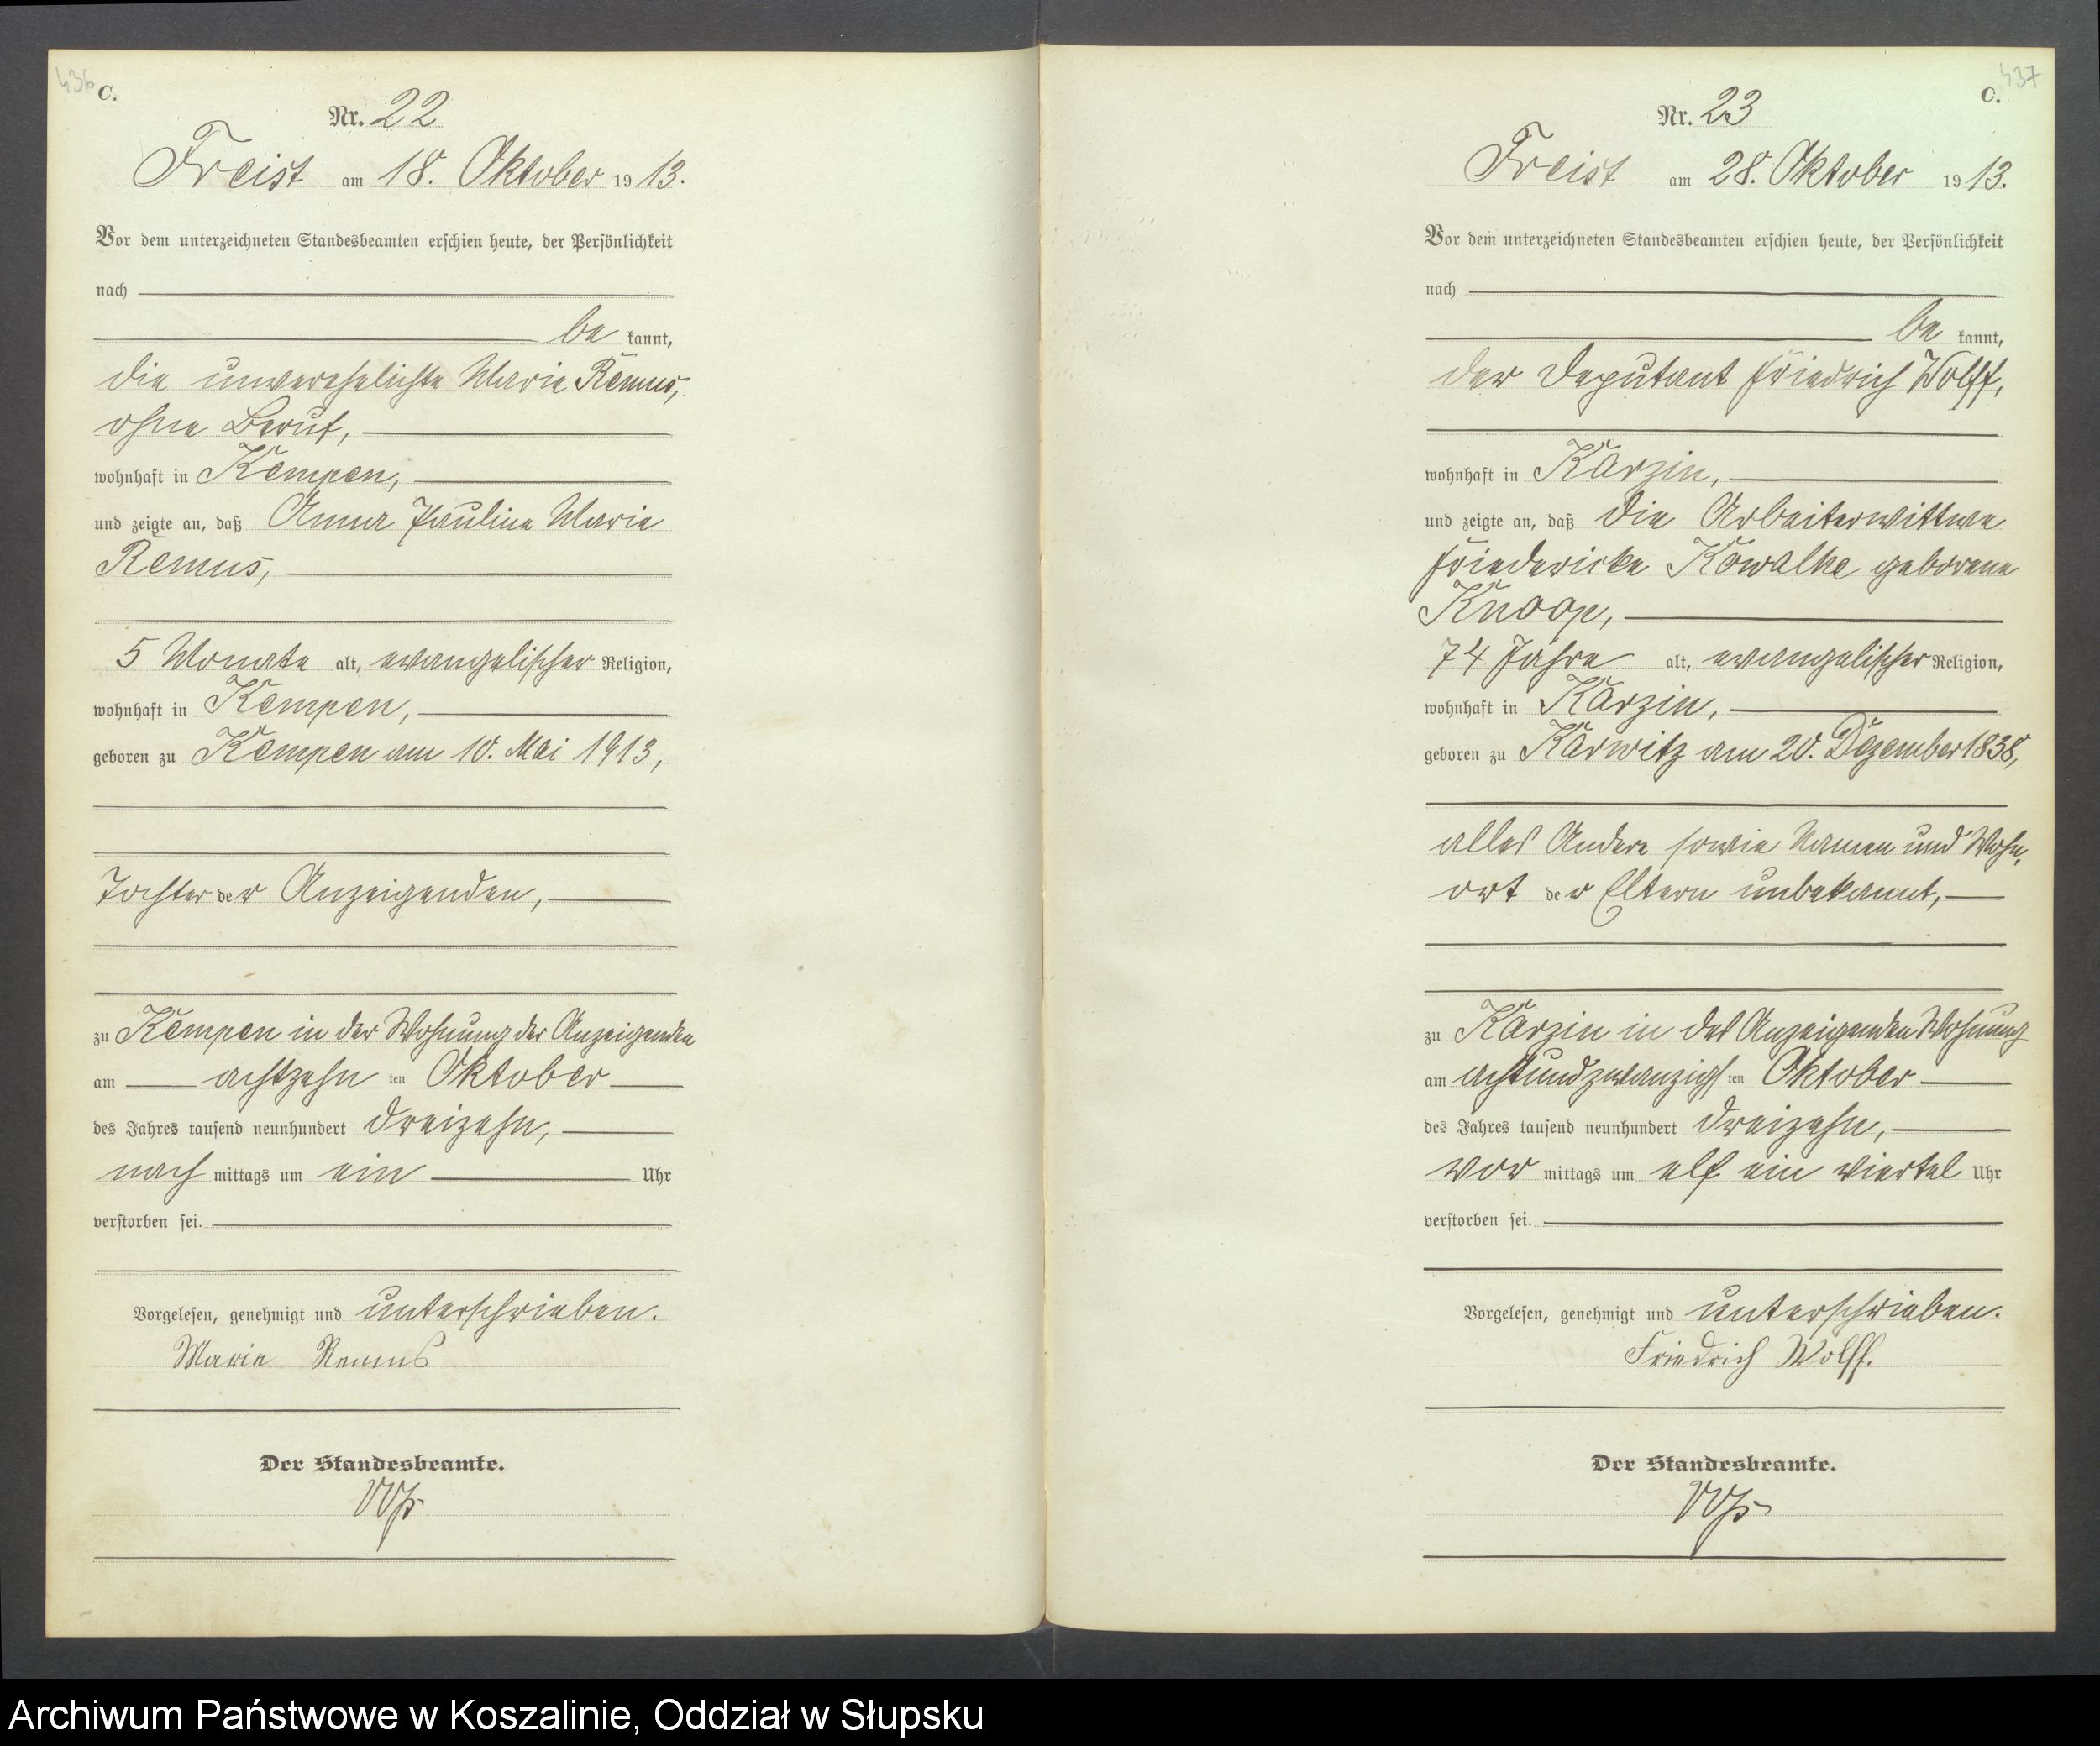 436
C.
Nr. 22
Freist am 18. Oktober 1913.
Vor dem unterzeichneten Standesbeamten erschien heute, der Persönlichkeit
nach
be kannt,
die unverehelichte Marie Remus,
ohne Beruf,
wohnhaft in Kempen,
und zeigte an, daß Anna Pauline Marie
Remus,
5 Monate alt, evangelischer Religion,
wohnhaft in Kempen,
geboren zu Kempen am 10. Mai 1913,
Tochter der Anzeigenden,
zu Kempen in der Wohnung der Anzeigenden
am achtzehn ten Oktober
des Jahres tausend neunhundert dreizehn,
nach mittags um ein Uhr
verstorben sei.
Vorgelesen, genehmigt und unterschrieben.
Marie Remus
Der Standesbeamte.
437
C.
Nr. 23
Freist am 28. Oktober 1913.
Vor dem unterzeichneten Standesbeamten erschien heute, der Persönlichkeit
nach
be kannt,
der Deputant Friedrich Wolff,
wohnhaft in Karzin,
und zeigte an, daß die Arbeiterwittwe
Friedericke Kowalke geborene
Knoop,
74 Jahre alt, evangelischer Religion,
wohnhaft in Karzin,
geboren zu Karwitz am 20. Dezember 1838,
alles Andere sowie Namen und Wohn-
ort der Eltern unbekannt,
zu Karzin in des Anzeigenden Wohnung
am achtundzwanzigs ten Oktober
des Jahres tausend neunhundert dreizehn,
vor mittags um elf ein viertel Uhr
verstorben sei.
Vorgelesen, genehmigt und unterschrieben.
Friedrich Wolff.
Der Standesbeamte.
Archiwum Państwowe w Koszalinie, Oddział w Słupsku